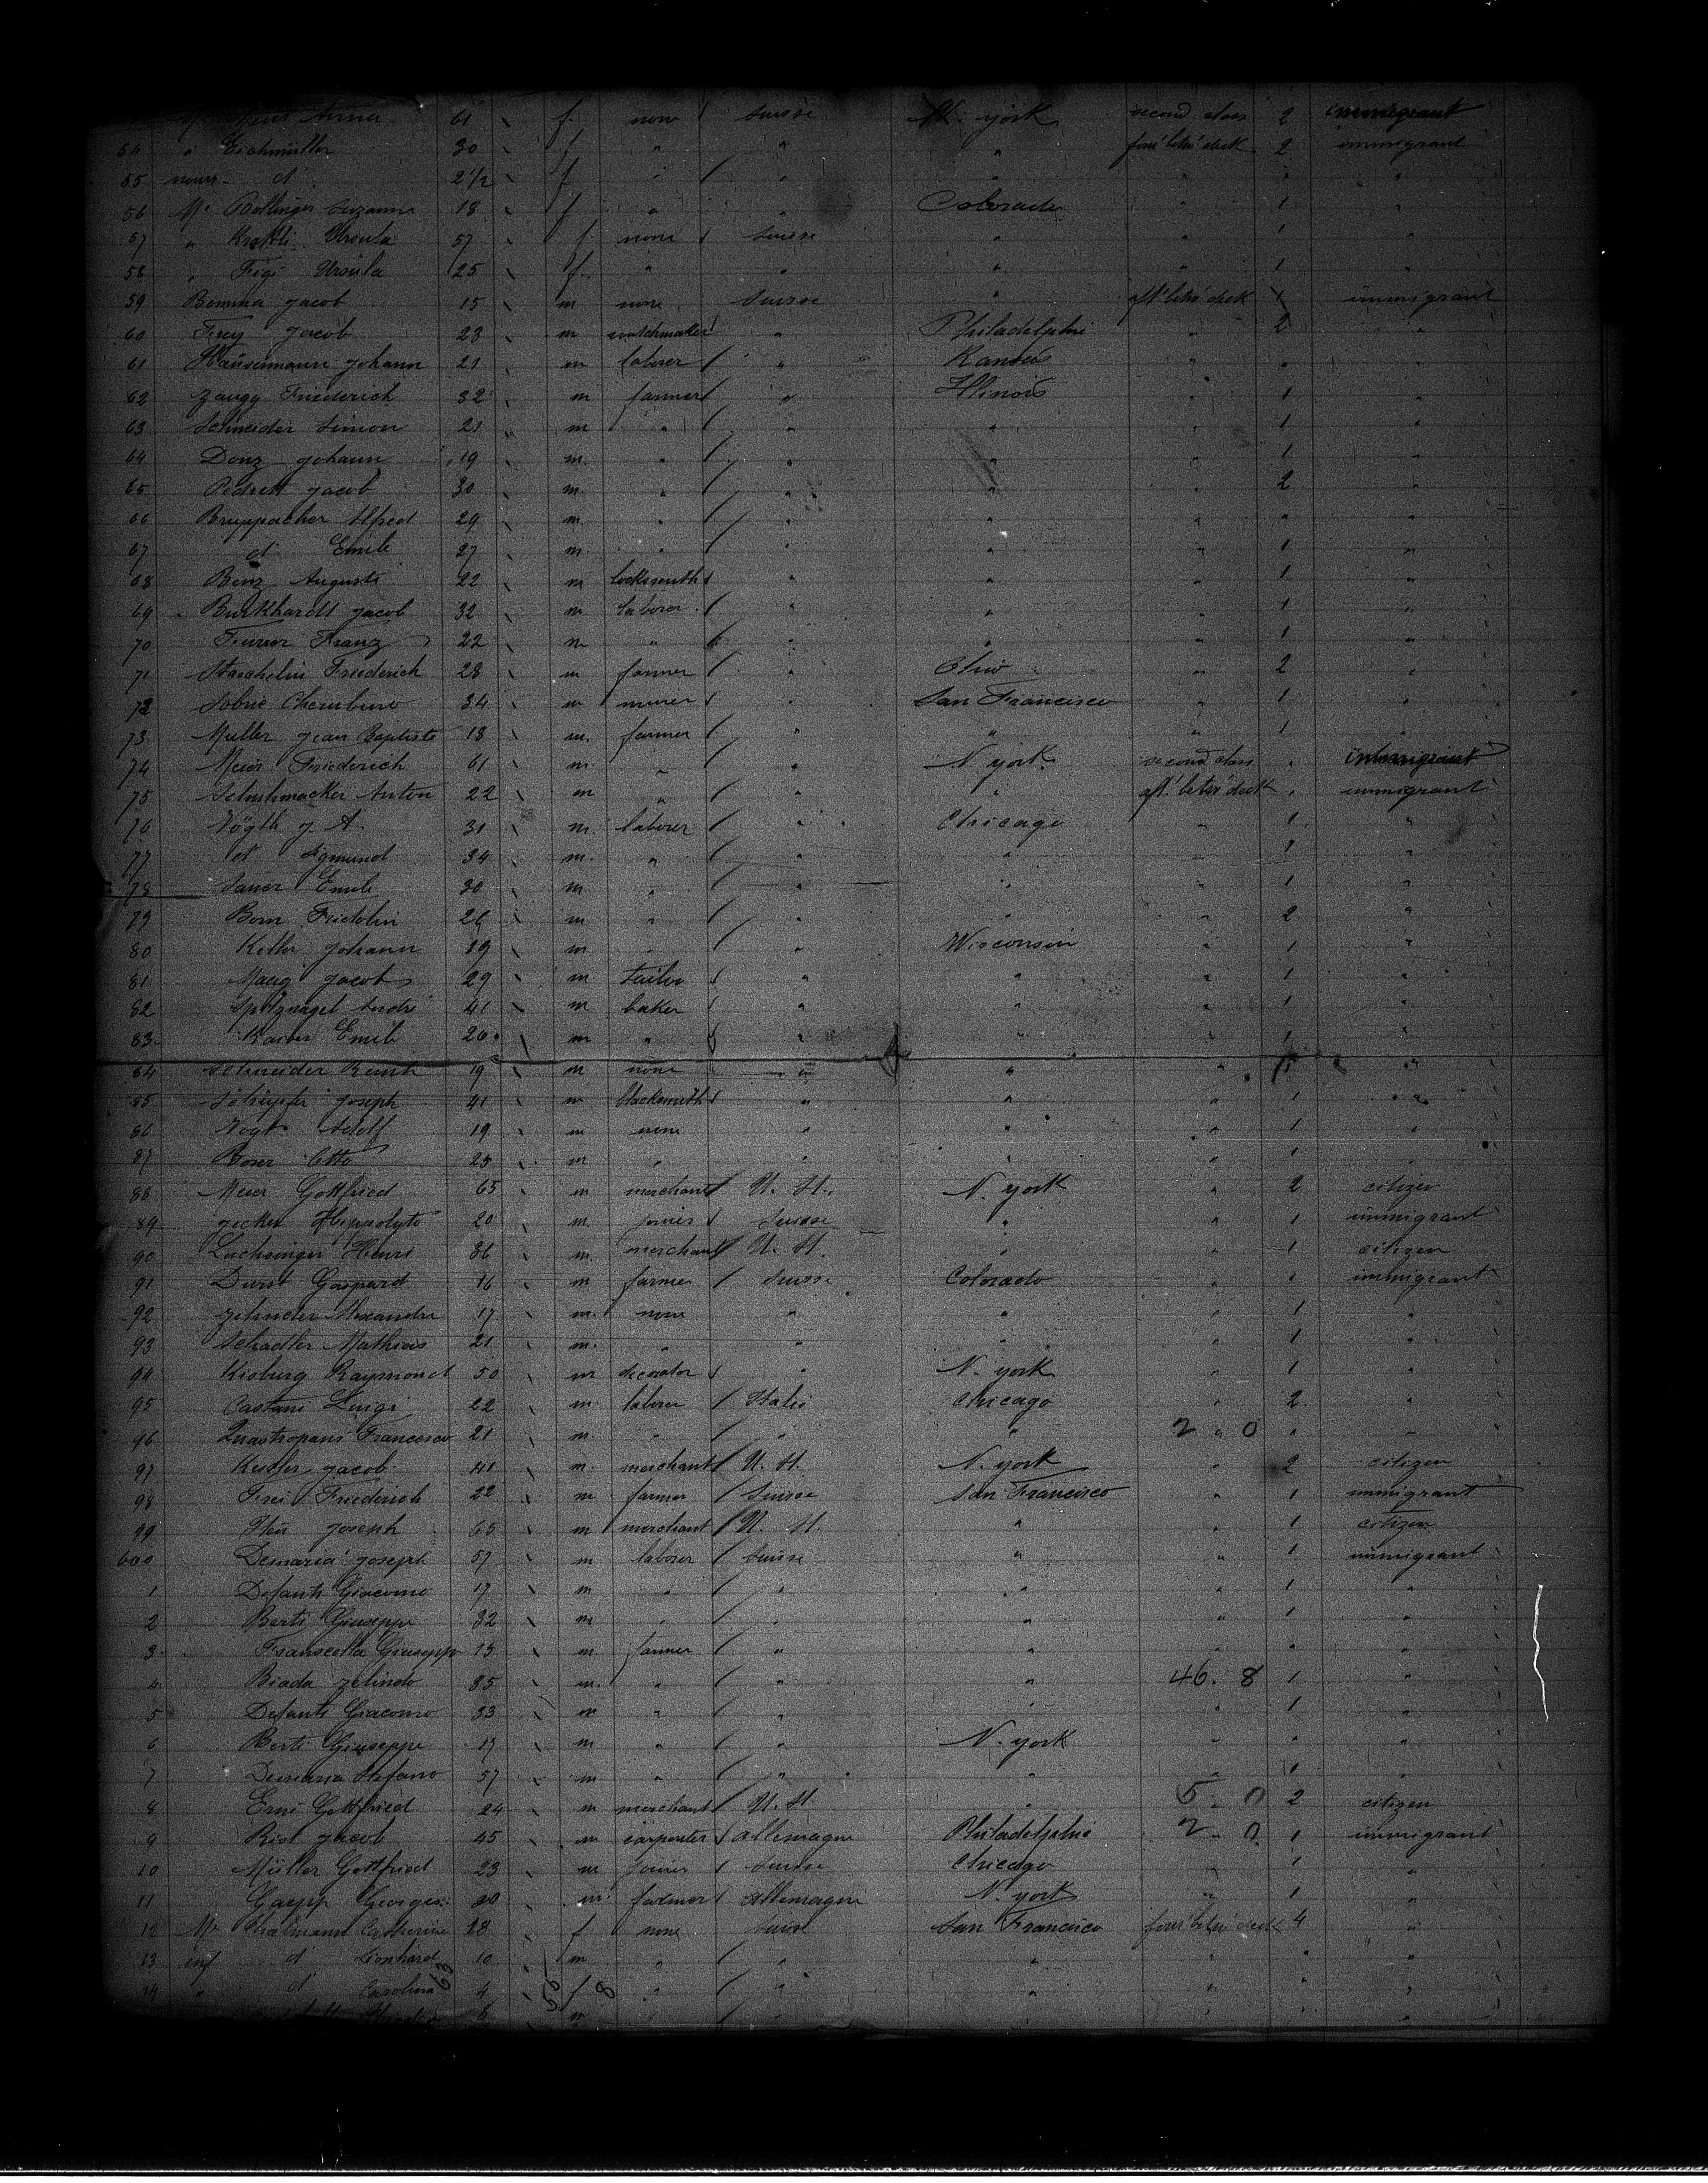 Anna 61 f. none Suisse N. york second class 2 immigrant
54 " Eichmüller 30 f " " " for' betw' deck 2 immigrant
55 nours d° 2 1/2 f " " " " " "
56 Me Bollinger Suzanne 18 f " " Colorado " 1 "
57 " Ursula 57 f. none Suisse " " 1 "
58 " Figi Ursula 25 f. " " " " 1 "
59 Bomina Jacob 15 m none Suisse " aft' betw' deck 1 immigrant
60 Frey Jacob 23 m watchmaker " Philadelphie " 2 "
61 Haüsermann Johann 21 m laborer " Kansas " " "
62 Zaugg Friederich 32 m farmer " Illinois " 1 "
63 Schneider Simon 21 m " " " " 1 "
64 Donz Johann 19 m. " " " " 1 "
65 Pedrett Jacob 30 m. " " " " 2 "
66 Bruppacher Alfred 29 m. " " " " " "
67 d° Emile 27 m. " " " " 1 "
68 Benz Auguste 22 m locksmith " " " 1 "
69 Burkhardt Jacob 32 m laborer " " " 1 "
70 Furrer Franz 22 m " " " " 1 "
71 Staehelin Friederich 28 m farmer " Ohio " 2 "
72 Cherubino 34 m miner " San Francisco " 1 "
73 Muller Jean Baptiste 18 m. farmer " " " 1 "
74 Meier Friederich 61 m. " " N york second class " immigrant
75 Anton 22 m " " " aft' betw' deck " immigrant
76 Vögtli J. A. 31 m. laborer " Chicago " 1 "
77 d° Sigmund 34 m. " " " " 1 "
78 Sauer Emile 30 m. " " " " 1 "
79 Born Fridolin 26 m " " " " 2 "
80 Keller Johann 19 m. " " Wisconsin " 1 "
81 Maag Jacob 29 m tailor " " " 1 "
82 Spitznagel André 41 m baker " " " 1 "
83 Kaiser Emile 20 m " " " " 1 "
84 Schneider 19 m none " " " "
85 Schüpfer Joseph 41 m blacksmith " " " 1 "
86 Vogt Adolf 19 m none " " " 1 "
87 Boser Otto 25 m " " " " 1 "
88 Meier Gottfried 65 m merchant U. St. N. york " 2 citizen
89 Jecker Hippolyte 20 m. joiner Suisse " " 1 immigrant
90 Luchsinger Henri 36 m. merchant U. St. " " 1 citizen
91 Durst Gaspard 16 m farmer Suisse Colorado " 1 immigrant
92 Zehnder Alexandre 17 m. none " " " 1 "
93 Schadler Mathias 21 m. " " " " 1 "
94 Kisburg Raymond 50 m decorator " N. york " 1 "
95 Castani Luigi 22 m laborer Italie Chicago " 2 "
96 Francesco 21 m. " " " 2 " 0 " "
97 Jacob 41 m. merchant U. St. N. york " 2 citizen
98 Frei Friederich 22 m farmer Suisse San Francisco " 1 immigrant
99 Joseph 65 m merchant U. St. " " 1 citizen
600 Demaria Joseph 57 m laborer Suisse " " 1 immigrant
1 Defanti Giacomo 17 m " " " " 1 "
2 Berti Giuseppe 32 m " " " " 1 "
3 Franscella Giuseppe 15 m. farmer " " " " "
4 Biada Zelindo 35 m. " " " 46. 8 1 "
5 Defanti Giacomo 33 m " " " " 1 "
6 Berti Giuseppe 17 m " " N. york " " "
7 Demaria Stefano 57 m " " " " 1 "
8 Erni Gottfried 24 m merchant U. St. " 5 0 2 citizen
9 Rist Jacob 45 m carpenter Allemagne Philadelphie 2 0 1 immigrant
10 Müller Gottfried 23 m joiner Suisse Chicago " 1 "
11 Gaepp Georges 20 m. farmer Allemagne N. york " 1 "
12 Me Thalmann Catherine 28 f none Suisse San Francisco for' betw' deck 4 "
13 inf d° Leonhard 10 m " " " " " "
14 " d° Carolina 4 f " " " " " "
63 56 8
6 m